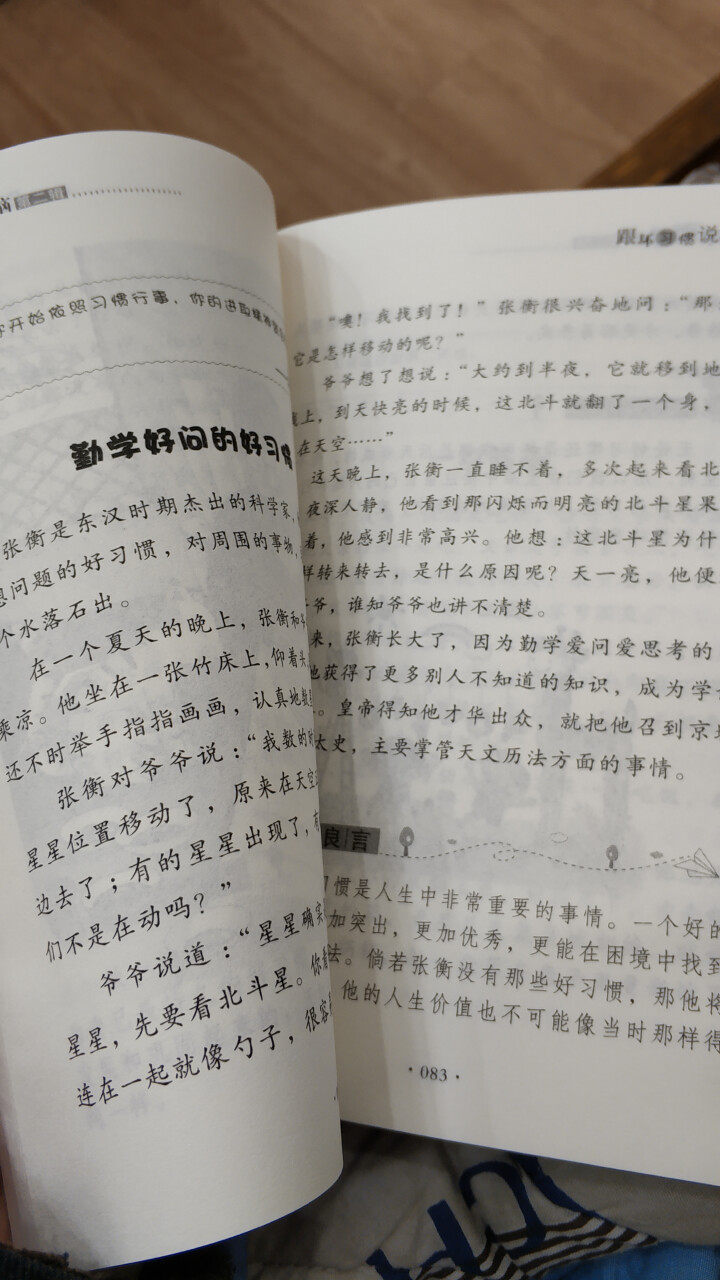 第二辑
开始依照习惯行事，你的进取
勤学好问的好习
张衡是东汉时期杰出的科学家，
想问题的好习惯，对周围的事物，
个水落石出。
在一个夏天的晚上，张衡和
乘凉。他坐在一张竹床上，仰着头，
还不时举手指指画画，认真地数
张衡对爷爷说：“我数的时
星星位置移动了，原来在天空
边去了；有的星星出现了，有
们不是在动吗？”
爷爷说道：“星星确实
星星，先要看北斗星。你看
连在一起就像勺子，很容
跟坏习惯说
“噢！我找到了！”张衡很兴奋地问：“那
它是怎样移动的呢？”
爷爷想了想说：“大约到半夜，它就移到地
上，到天快亮的时候，这北斗就翻了一个身，
在天空……”
这天晚上，张衡一直睡不着，多次起来看北
夜深人静，他看到那闪烁而明亮的北斗星果
着，他感到非常高兴。他想：这北斗星为什
样转来转去，是什么原因呢？天一亮，他便
爷，谁知爷爷也讲不清楚。
来，张衡长大了，因为勤学爱问爱思考的
他获得了更多别人不知道的知识，成为学
。皇帝得知他才华出众，就把他召到京
太史，主要掌管天文历法方面的事情。
良言
惯是人生中非常重要的事情。一个好的
加突出，更加优秀，更能在困境中找到
去。倘若张衡没有那些好习惯，那他将
他的人生价值也不可能像当时那样得
·083·